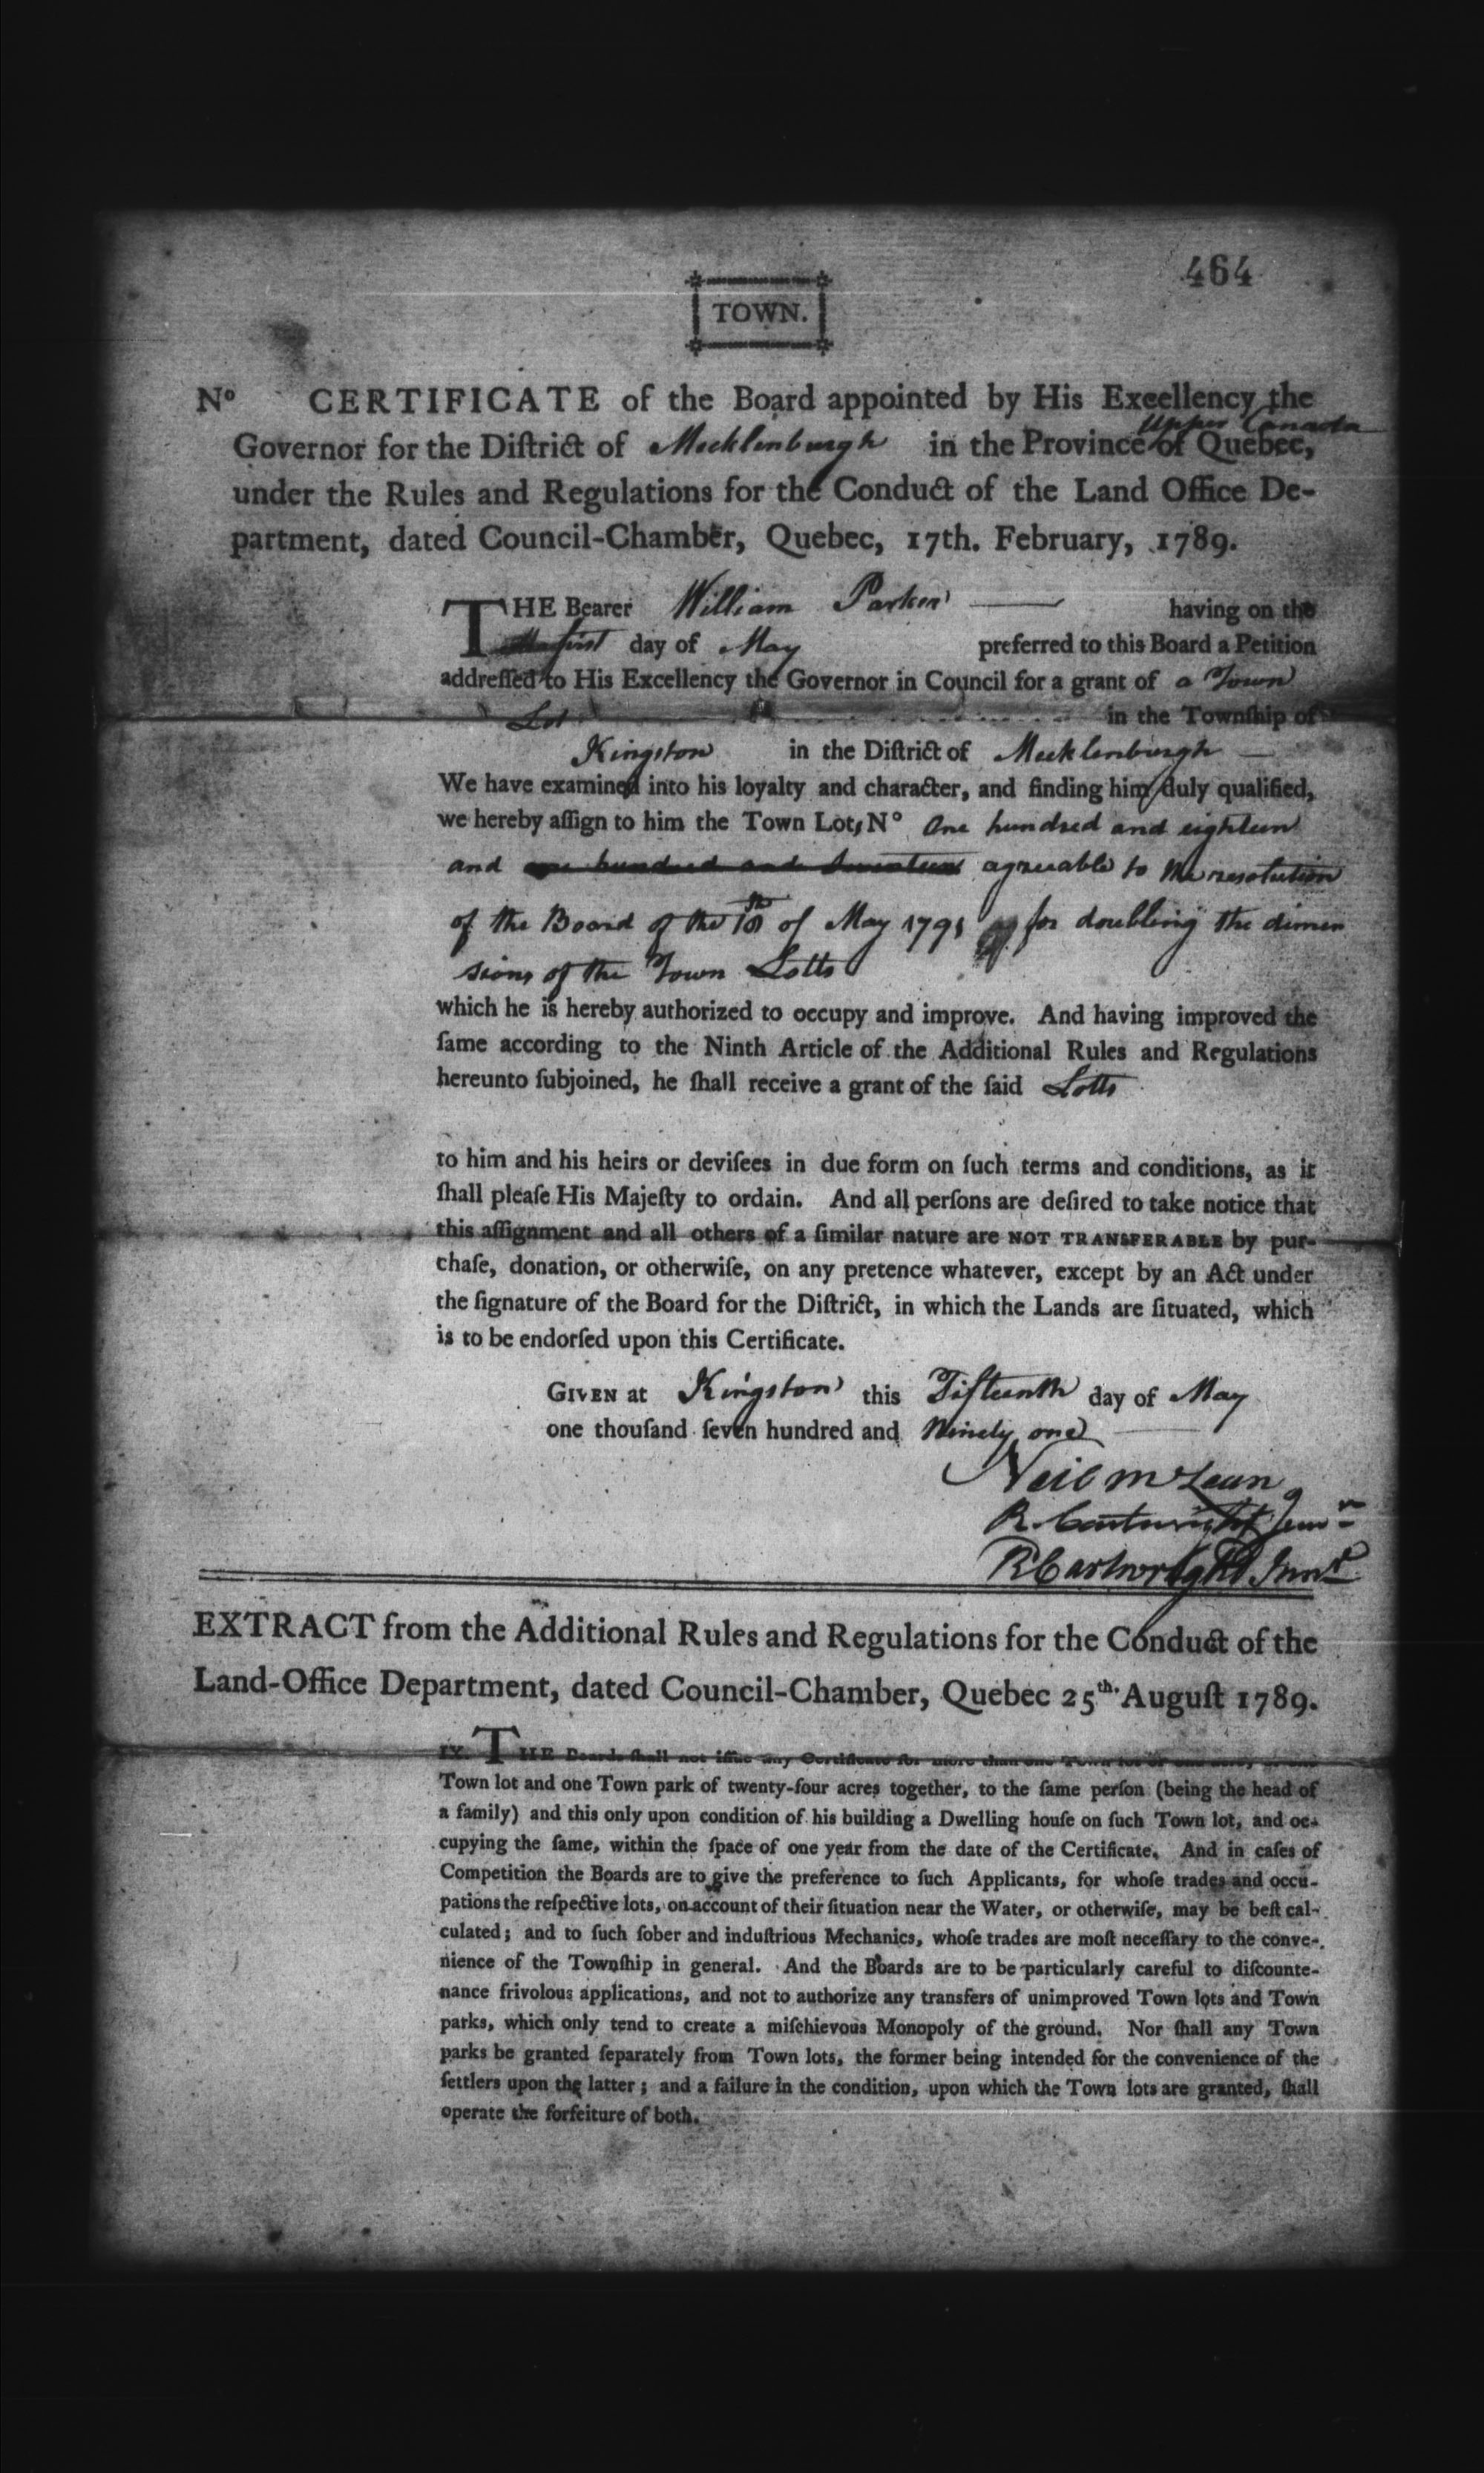 464
TOWN.
Nº CERTIFICATE of the Board appointed by His Excellency the
Upper Canada
Governor for the Diſtrict of Mecklenburgh in the Province of Quebec,
under the Rules and Regulations for the Conduct of the Land Office De-
partment, dated Council-Chamber, Quebec, 17th. February, 1789.
THE Bearer William Parker having on the
first day of May preferred to this Board a Petition
addreſſed to His Excellency the Governor in Council for a grant of a Town
Lot in the Townſhip of
Kingston in the Diſtrict of Mecklenburgh
We have examined into his loyalty and character, and finding him duly qualified,
we hereby aſſign to him the Town Lot, Nº One hundred and eighteen
and one hundred and seventeen agreeable to the resolution
of the Board of the of May 1791 for doubling the dimen
sions of the Town Lotts
which he is hereby authorized to occupy and improve. And having improved the
ſame according to the Ninth Article of the Additional Rules and Regulations
hereunto ſubjoined, he ſhall receive a grant of the ſaid Lotts
to him and his heirs or deviſees in due form on ſuch terms and conditions, as it
ſhall pleaſe His Majeſty to ordain. And all perſons are deſired to take notice that
this aſſignment and all others of a ſimilar nature are NOT TRANSFERABLE by pur-
chaſe, donation, or otherwiſe, on any pretence whatever, except by an Act under
the ſignature of the Board for the Diſtrict, in which the Lands are ſituated, which
is to be endorſed upon this Certificate.
GIVEN at Kingston this Fifteenth day of May
one thouſand ſeven hundred and Ninety one
Neil McLean
R. Cartwright Junr
R Cartwright Junr
EXTRACT from the Additional Rules and Regulations for the Conduct of the
Land-Office Department, dated Council-Chamber, Quebec 25th. Auguſt 1789.
IX. THE Boards ſhall not iſſue any Certificate for more than one Town lot of one acre, or one
Town lot and one Town park of twenty-four acres together, to the ſame perſon (being the head of
a family) and this only upon condition of his building a Dwelling houſe on ſuch Town lot, and oc-
cupying the ſame, within the ſpace of one year from the date of the Certificate. And in caſes of
Competition the Boards are to give the preference to ſuch Applicants, for whoſe trades and occu-
pations the reſpective lots, on account of their ſituation near the Water, or otherwiſe, may be beſt cal-
culated; and to ſuch ſober and induſtrious Mechanics, whoſe trades are moſt neceſſary to the conve-
nience of the Townſhip in general. And the Boards are to be particularly careful to diſcounte-
nance frivolous applications, and not to authorize any transfers of unimproved Town lots and Town
parks, which only tend to create a miſchievous Monopoly of the ground. Nor ſhall any Town
parks be granted ſeparately from Town lots, the former being intended for the convenience of the
ſettlers upon the latter; and a failure in the condition, upon which the Town lots are granted, ſhall
operate the forfeiture of both.